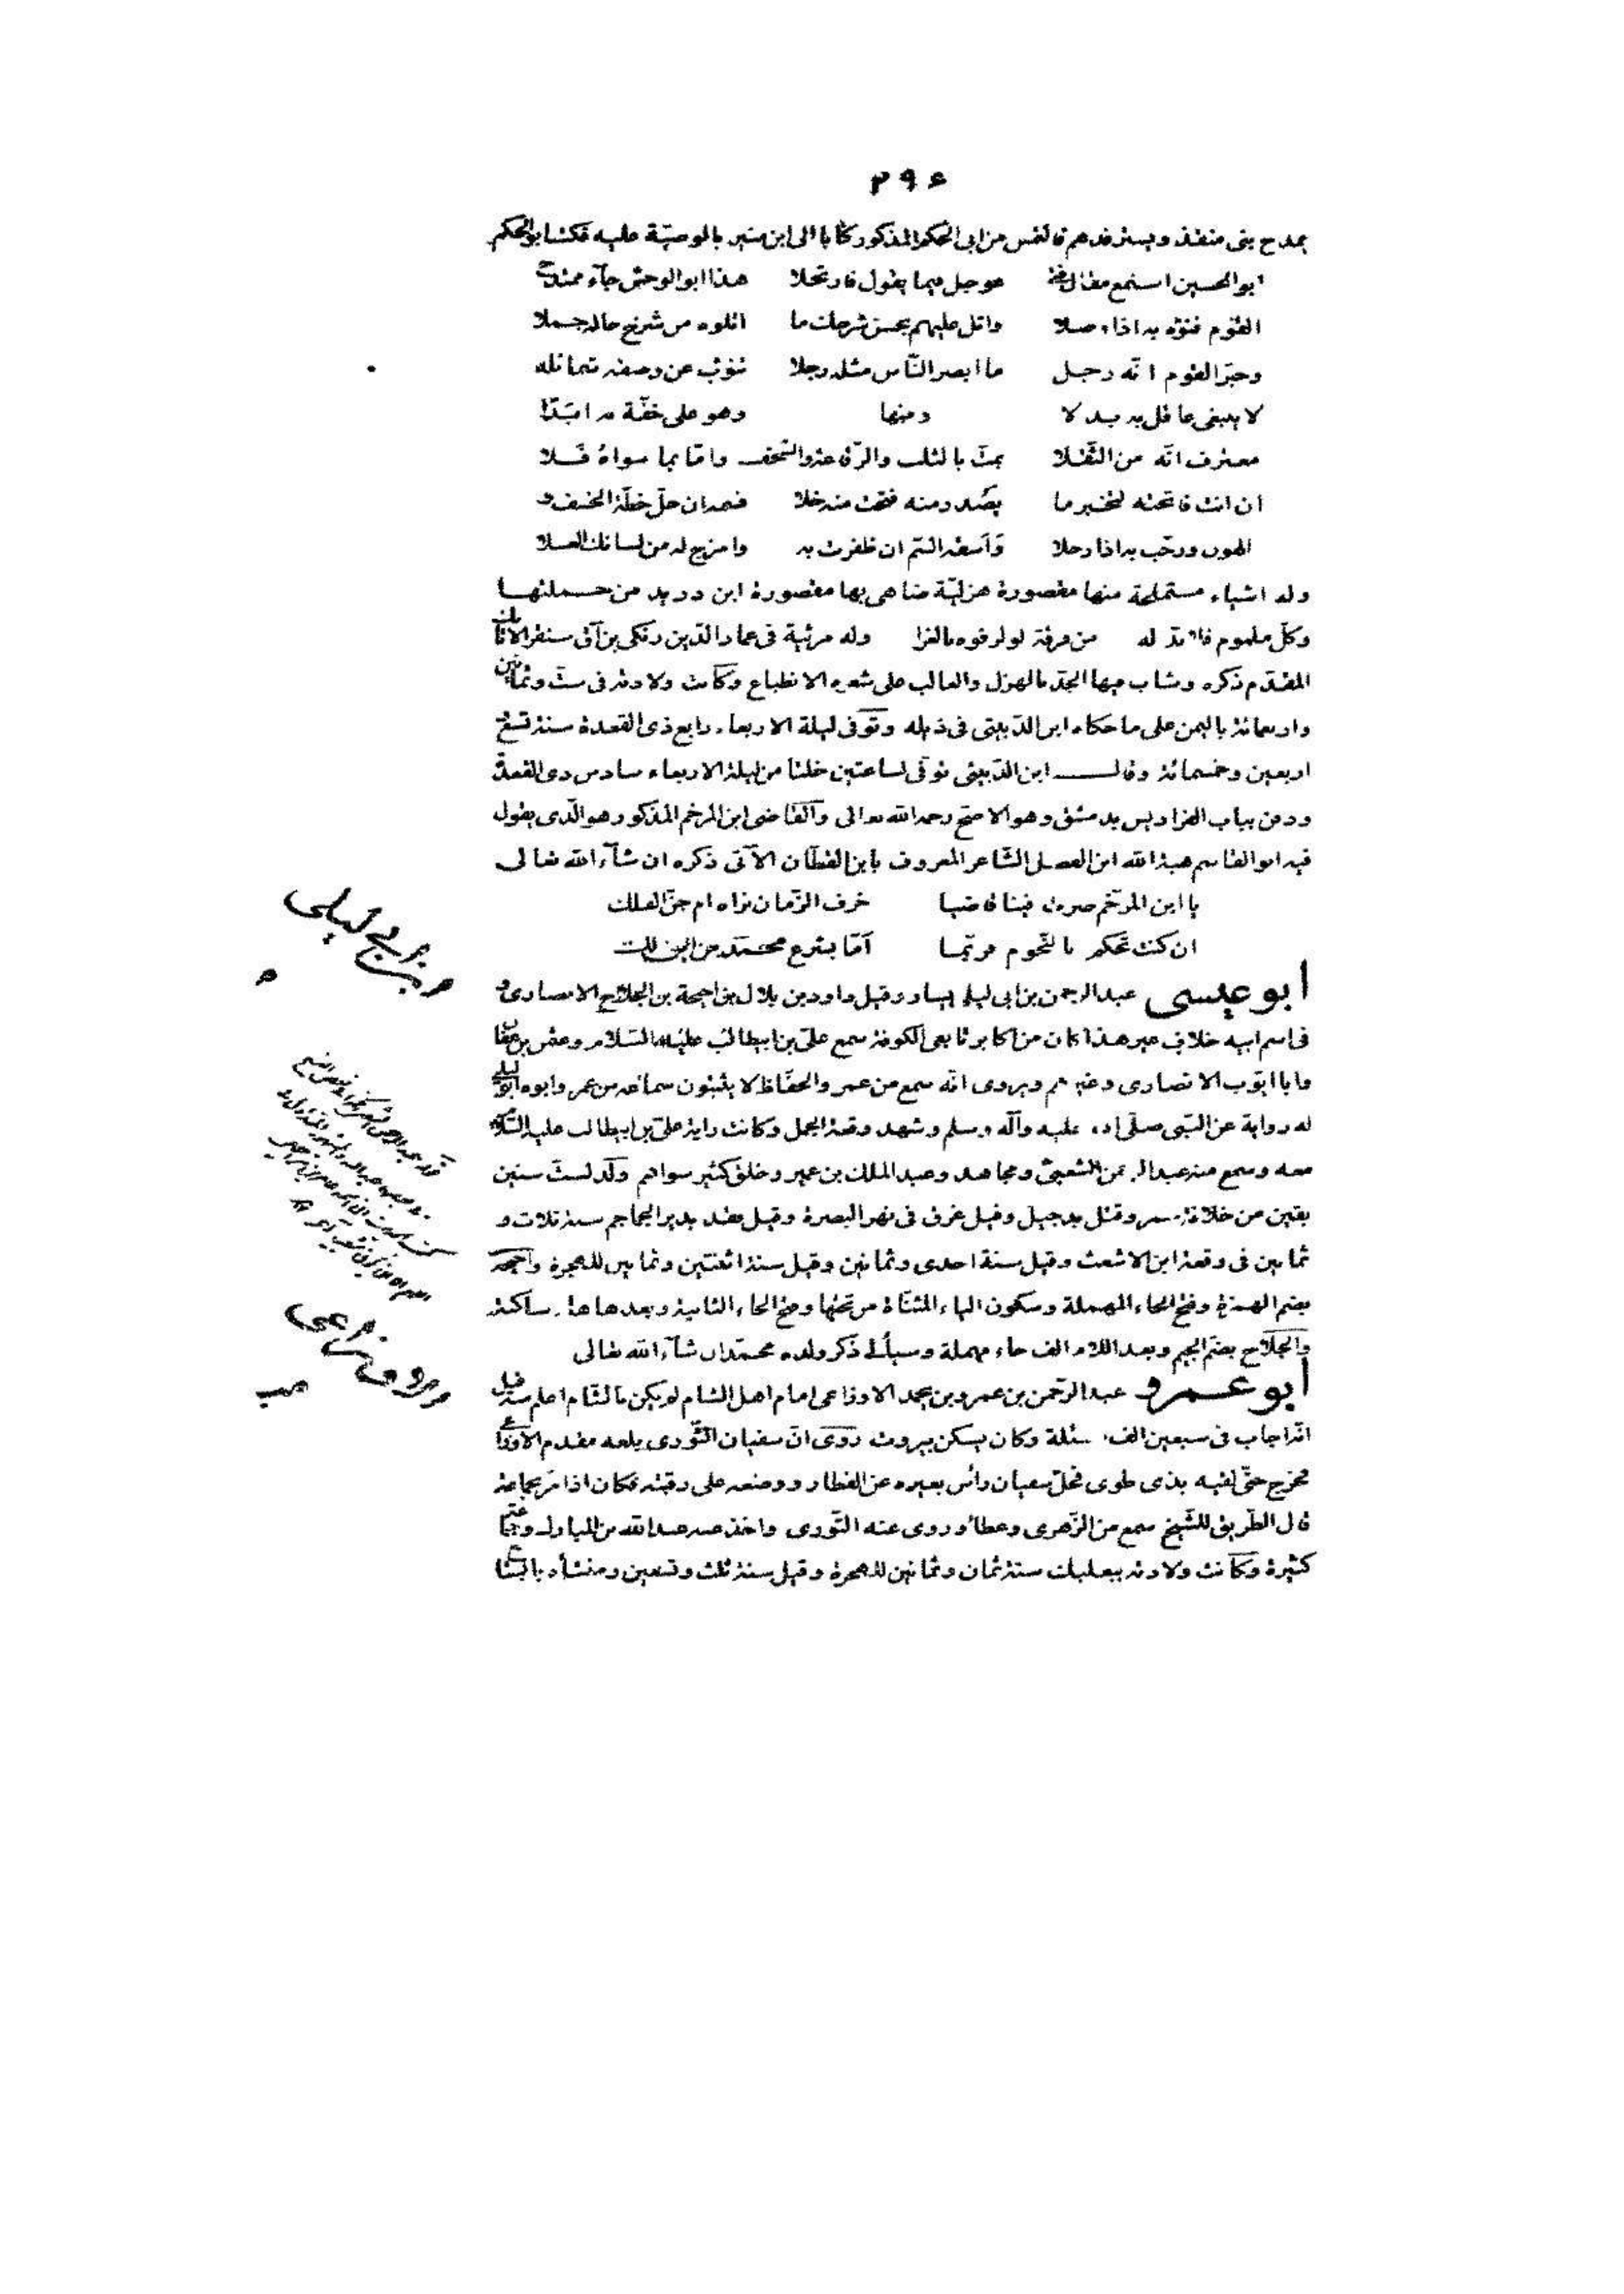 ٢٩٤
يمدح بنى منقذ ويسترفدهم فالتمس من ابى الحكم المذكور كتابا الى ابن منير بالوصيّة عليه فكتب ابو الحكم
ابو الحسين استمع مقال فتى عوجل فيما يقول فارتجلا هذا ابو الوحش جآء ممتدح
القوم فنوّه به اذا وصلا واتل عليهم بحسن شرحك ما اتلوه من شرح حاله جملا
وخبّر القوم انّه رجل ما ابصر النّاس مثله رجلا تنوب عن وصفه شمائله
لا يبتغى عاقل به بدلا ومنها وهو على خفّة به ابدًا
معترف انّه من الثّقلا يمتّ بالثلب والرّقاعة والسّخف وامّا بما سواه فلا
ان انت فاتحته لتخبر ما يصدر منه فتحت منه خلا فنبه ان حلّ خطّة الخسف و
الهون ورحّب به اذا رحلا وآسقه السّم ان ظفرت به وامزج له من لسانك العسلا
وله اشياء مستملحة منها مقصورة هزليّة ضاهى بها مقصورة ابن دريد من جملتها
وكلّ ملموم فلا بدّ له من فرقة لو لزقوه بالغرا وله مرثية فى عماد الدّين زنكى بن آق سنقر الاتابك
المقدّم ذكره وشاب فيها الجدّ بالهزل والغالب على شعره الانطباع وكآنت ولادته فى ستّ وثمانين
واربعمائة باليمن على ما حكاه ابن الدّبيثى فى ذيله وتوّفى ليلة الاربعاء رابع ذى القعدة سنة تسع
اربعين وخمسمائة وقال ابن الدّبيثى توفّى لساعتين خلتا من ليلة الاربعاء سادس ذى القعدة
ودفن بباب الفراديس بدمشق وهو الاصحّ رحمه الله تعالى وآلقاضى ابن المرخم المذكور هو الّذى يقول
فيه ابو القاسم هبة الله ابن الفضل الشّاعر المعروف بابن القطّان الآتى ذكره ان شآء الله تعالى
يا ابن المرخّم صرت فينا قاضيا خرف الزّمان تراه ام جنّ الفلك
ان كنت تحكم بالنّجوم فربّما آمّا بشرع محمّد من اين لك
أبو عيسى عبد الرحمن بن ابى ليلى يسار وقيل داود بن بلال بن احيحة بن الجلاح الانصارى و
فى اسم ابيه خلاف غير هذا كان من اكابر تابعى الكوفة سمع علىّ بن ابيطالب عليه السّلام وعثمن بن عفان
وابا ايّوب الانصارى وغيرهم ويروى انّه سمع من عمر والحفّاظ لا يثبتون سماعه من عمر وابوه ابو ليلى
له رواية عن النّبى صلّى الله عليه وآله وسلم وشهد وقعة الجمل وكانت راية علىّ بن ابيطالب عليه السّلام
معه وسمع منه عبد الرحمن الشعبىّ ومجاهد وعبد الملك بن عمير وخلق كثير سواهم ولد لستّ سنين
بقين من خلافة عمر وقتل بدجيل وقيل غرق فى نهر البصرة وقيل فقد بدير الجماجم سنة ثلاث و
ثمانين فى وقعة ابن الاشعث وقيل سنة احدى وثمانين وقيل سنة اثنتين وثمانين للهجرة واحيحه
بضم الهمزة وفتح الحاء المهملة وسكون الياء المثنّاة من تحتها وفتح الحاء الثانية وبعدها هاء ساكنة
والجلاح بضمّ الجيم وبعد اللام الف حاء مهملة وسيأتى ذكر ولده محمّد ان شآء الله تعالى
أبو عمرو عبد الرّحمن بن عمرو بن يحمد الاوزاعى امام اهل الشام لم يكن بالشّام اعلم منه قيل
انّه اجاب فى سبعين الف مسئلة وكان يسكن بيروت روى انّ سفيان الثّورى بلغه مقدم الاوزاعى
فخرج حتّى لقيه بذى طوى فحلّ سفيان رأس بعيره عن القطار ووضعه على رقبته فكان اذا مرّ بجماعة
قال الطّريق للشّيخ سمع من الزّهرى وعطاء وروى عنه الثّورى واخذ عنه عبد الله بن المبارك وجماعة
كثيرة وكآنت ولادته ببعلبك سنة ثمان وثمانين للهجرة وقيل سنة ثلث وتسعين ومنشأه بالبقاع
بن ابى ليلى